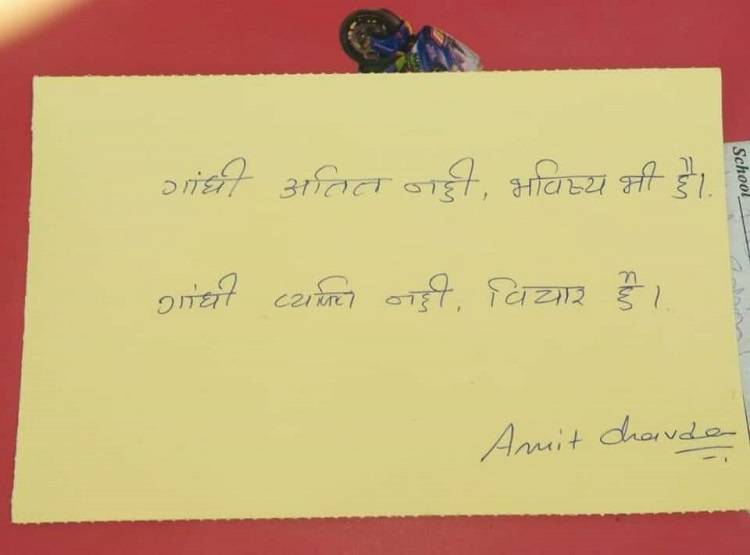 गांधी अतित नही, भविष्य भी है।
गांधी व्यक्ति नही, विचार है।
Amit Chavda
School